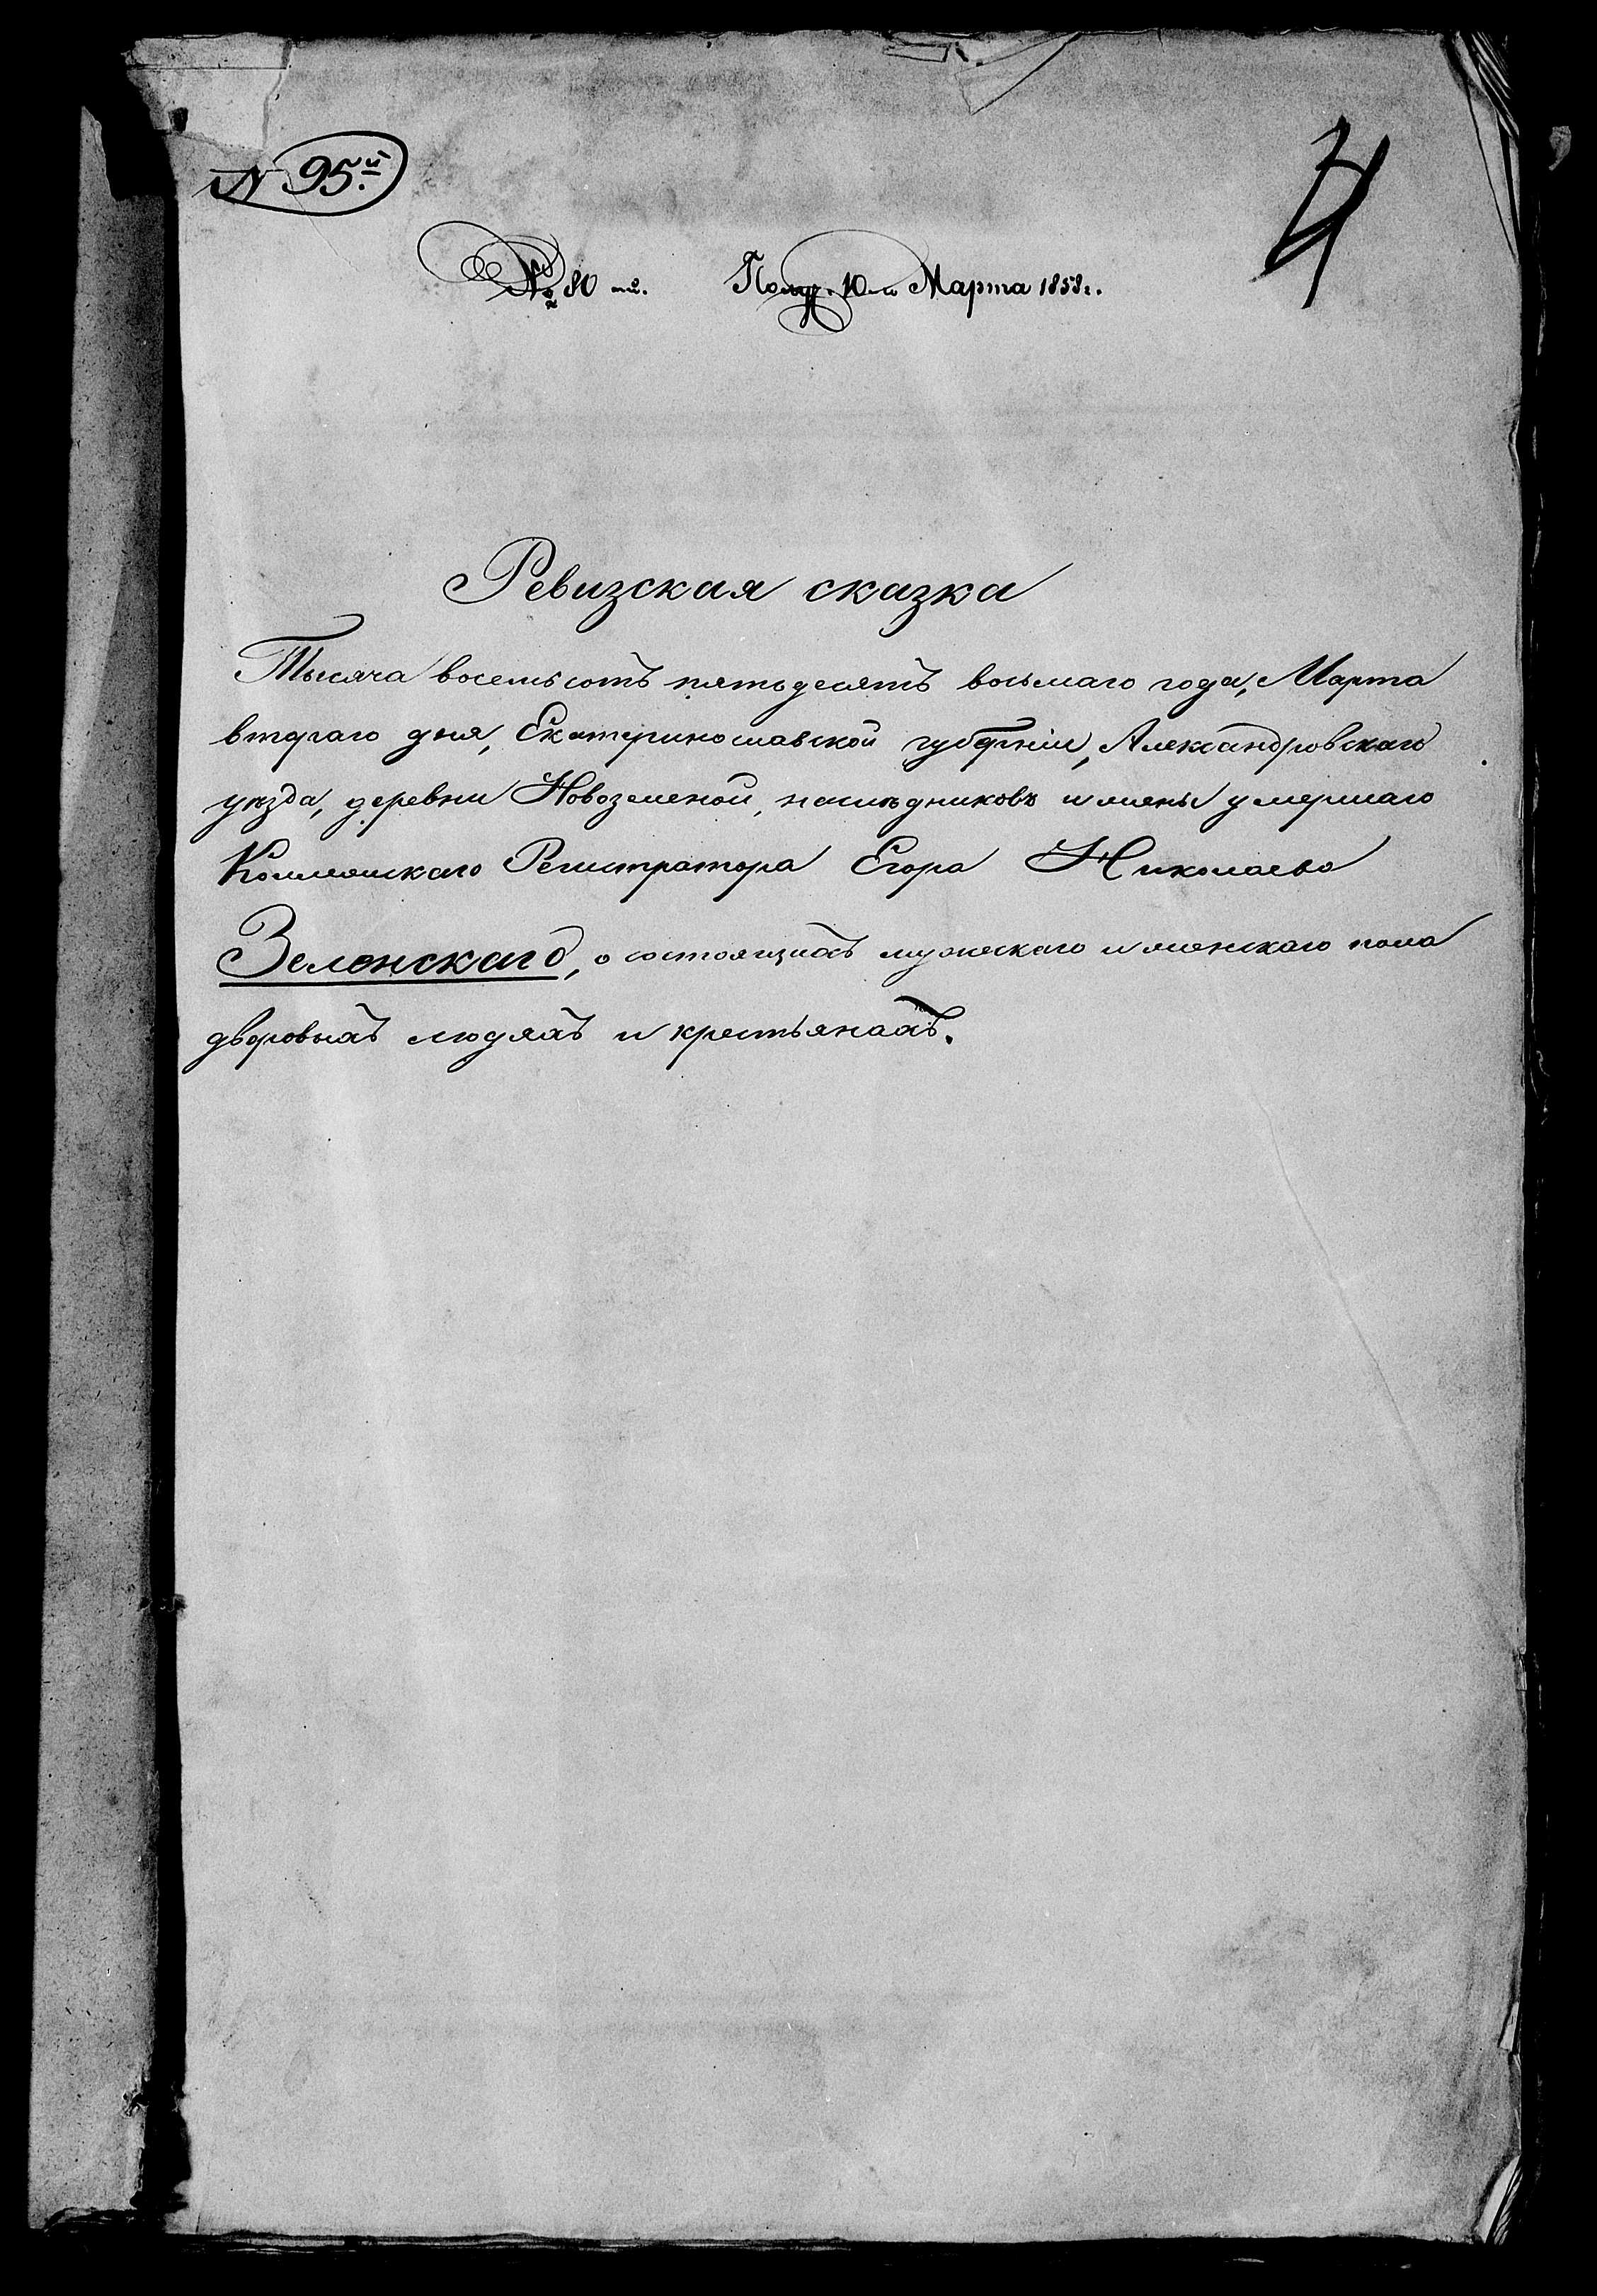 N 95й
4
№ 80 ый. Получ. 10го Марта 1858 г.
Ревизская сказка
Тысяча восемьсотъ пятьдесятъ восьмаго года, Марта
втораго дня, Екатеринославской губерніи, Александровскаго
уѣзда, деревни наслѣдниковъ и жены умершаго
Коллежскаго Регистратора Егора Николаева
Зеленскаго, о состоящихъ мужескаго и женскаго пола
дворовыхъ людяхъ и крестьянахъ.